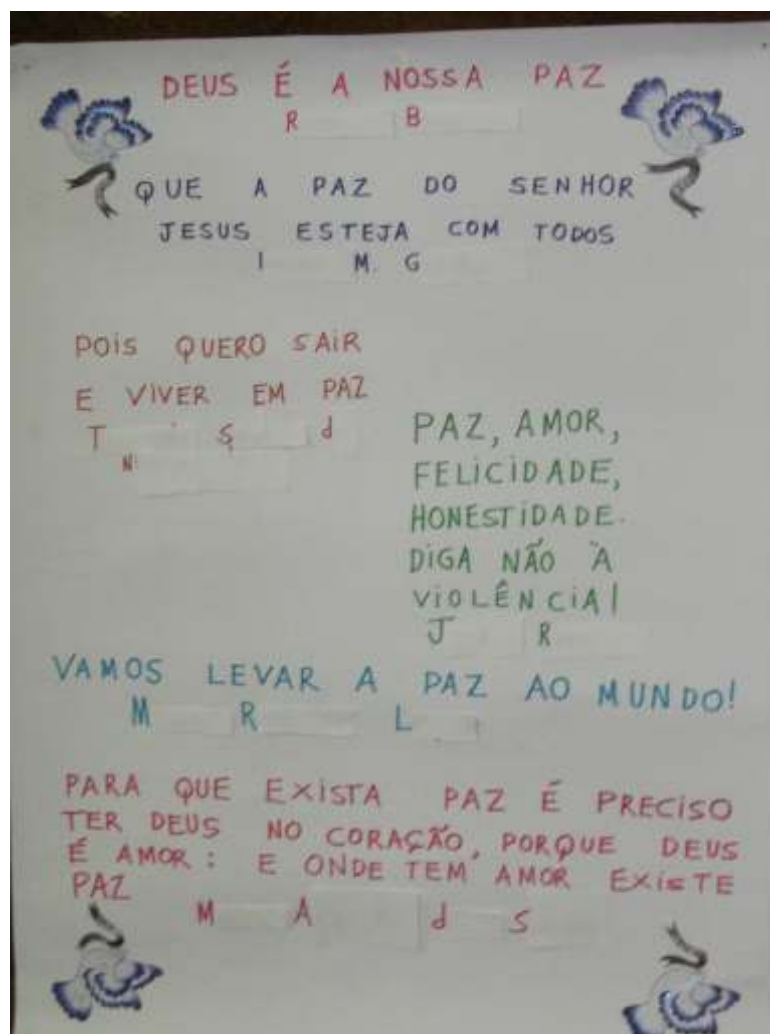 DEUS É A NOSSA PAZ
R B
QUE A PAZ DO SENHOR
JESUS ESTEJA COM TODOS
I M. G
POIS QUERO SAIR
E VIVER EM PAZ
T S d
N
PAZ, AMOR,
FELICIDADE,
HONESTIDADE.
DIGA NÃO À
VIOLÊNCIA!
J R
VAMOS LEVAR A PAZ AO MUNDO!
M R L
PARA QUE EXISTA PAZ É PRECISO
TER DEUS NO CORAÇÃO, PORQUE DEUS
É AMOR: E ONDE TEM AMOR EXISTE
PAZ
M A d S